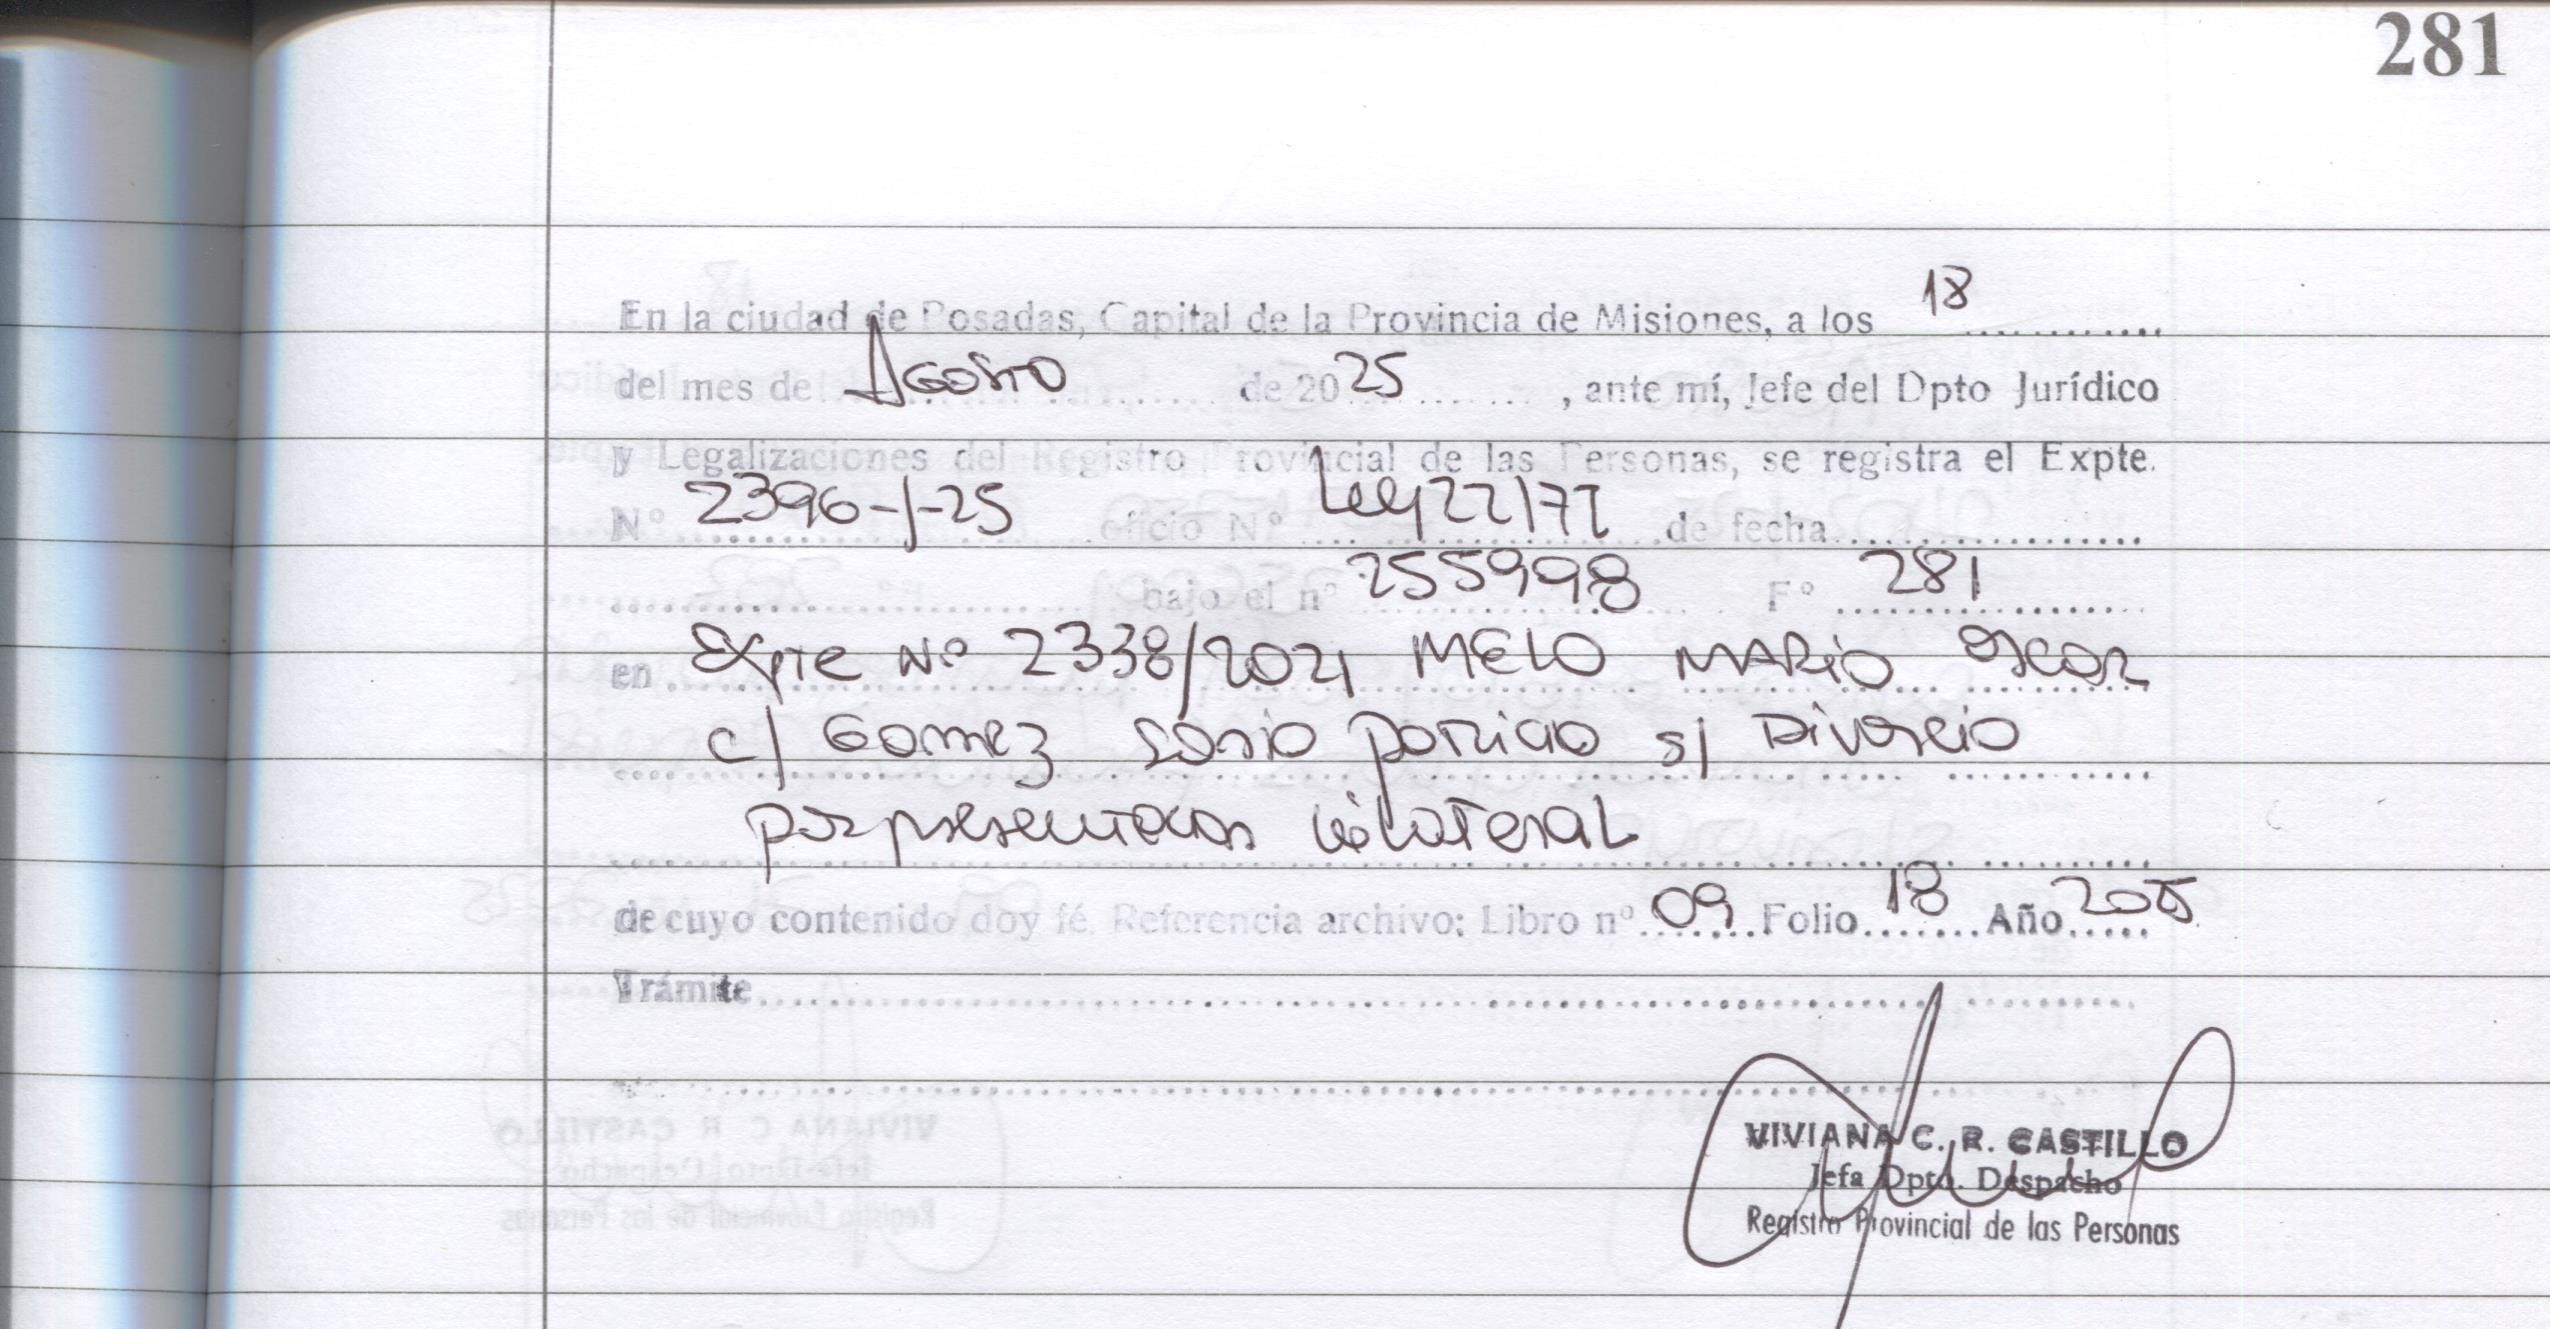 281
En la ciudad de Posadas, Capital de la Provincia de Misiones, a los 18
del mes de Agosto de 2025, ante mí, Jefe del Dpto Jurídico
y Legalizaciones del Registro Provincial de las Personas, se registra el Expte.
Nº 2396-J-25 oficio Nº Ley 22172 de fecha
bajo el nº 255998 Fº 281
en Expte Nº 2338/2021 MELO MARIO Oscar
c/ Gomez Sonia Patricia s/ Divorcio
por presentacion Unilateral
de cuyo contenido doy fé. Referencia archivo: Libro nº 09 Folio 18 Año 2025
Trámite
VIVIANA C. R. CASTILLO
Jefa Dpto. Despacho
Registro Provincial de las Personas